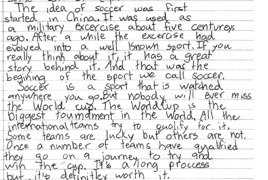 The idea of soccer was first
started in China. It was used as
a military exercise about five centureys
ago. After a while the excercise had
evolved into a well known sport. If you
really think about it it has a great
story behind it. And that was the
begining of the sport we call soccer.
Soccer is a sport that is watched
anywhere you go. Nobody will ever miss
the World cup. The World cup is the
biggest tournament in the World. All the
international teams try to qualify for it.
Some teams are lucky but others are not.
Once a number of teams have qualified
they go on a journey to try and
win the cup. It's a long process
but it's definitley worth it.